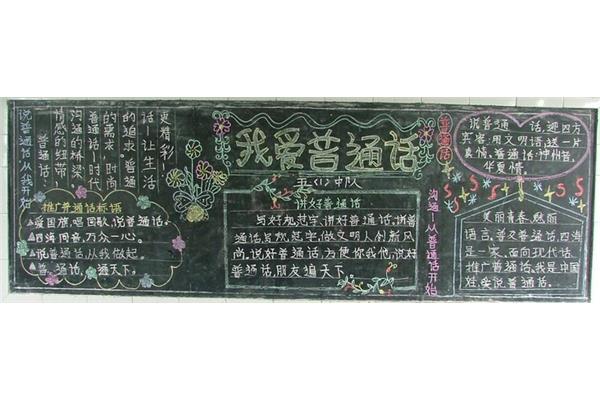 说普通话从我开始
普通话
情感的纽带
沟通的桥梁
普通话—时代
的需求,时尚
的追求。普通
话—让生活
更精彩!
推广普通话标语
爱国旗,唱国歌,说普通话。
四海同音,万众一心。
说普通话,从我做起。
普通话,通天下。
我爱普通话
五(1)中队
讲好普通话
写好规范字,讲好普通话,讲普
通话,写规范字,做文明人创新风
尚,说好普通话,方便你我他,说好
普通话,朋友遍天下
普通话
沟通—从普通话开始
说普通话,迎四方
宾客;用文明语,送一片
真情。普通话,神州音,
华夏情。
美丽青春,魅丽
语言,普及普通话,四海
是一家。面向现代话,
推广普通话。我是中国
娃,要说普通话。